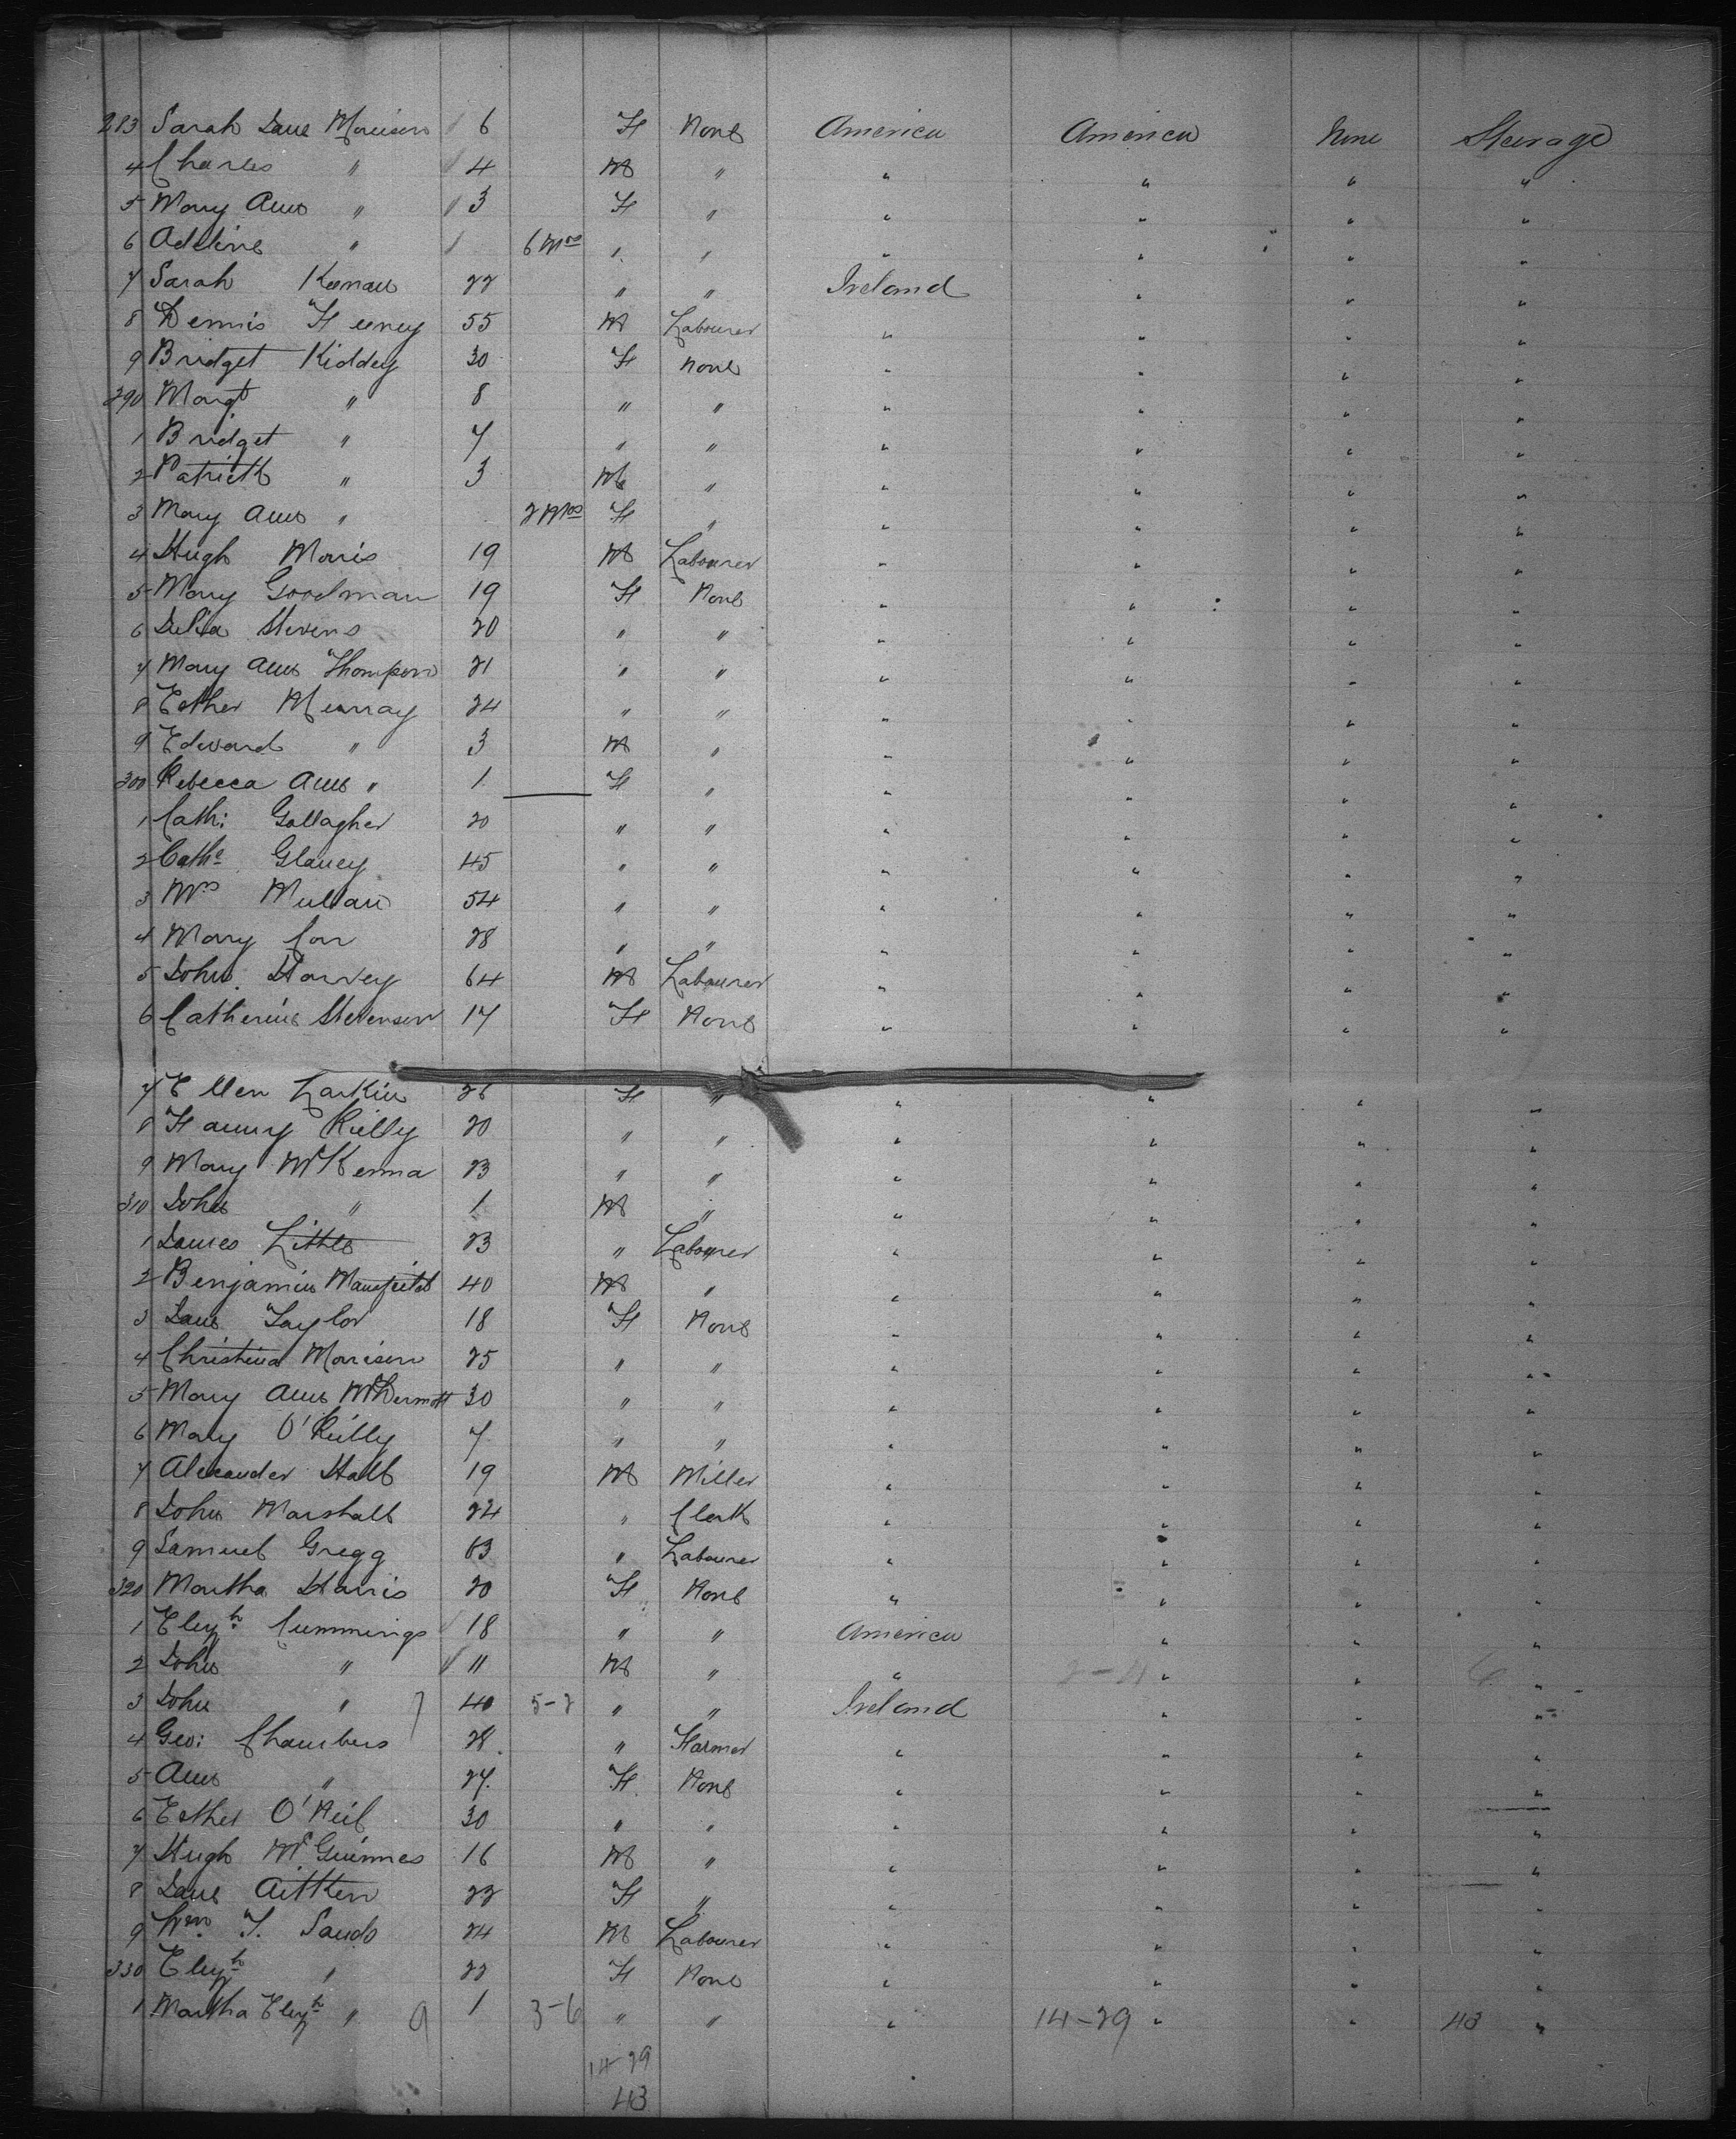 283 Sarah Jane Morrison 6 F None America America None Steerage
4 Charles " 4 M " " " " "
5 Mary Ann " 3 F " " " " "
6 Adeline " 6 Mos " " " " " "
7 Sarah Keenan 22 " " Ireland " " "
8 Dennis Feeney 55 M Labourer " " " "
9 Bridget Kiddey 30 F None " " " "
290 Margt " 8 " " " " " "
1 Bridget " 7 " " " " " "
2 Patrick " 3 M " " " " "
3 Mary Ann " 2 Mos F " " " " "
4 Hugh Morris 19 M Labourer " " " "
5 Mary Goodman 19 F None " " " "
6 Delia Stevens 20 " " " " " "
7 Mary Ann Thompson 21 " " " " " "
8 Esther Murray 24 " " " " " "
9 Edward " 3 M " " " " "
300 Rebecca Ann " 1 F " " " " "
1 Cath: Gallagher 20 " " " " " "
2 Cathe Glancy 45 " " " " " "
3 Mrs Mullan 54 " " " " " "
4 Mary Carr 28 " " " " " "
5 John Harvey 64 M Labourer " " " "
6 Catherine Stevenson 17 F None " " " "
7 Ellen Larkin 26 F " " " " "
8 Fanny Rielly 20 " " " " " "
9 Mary McKenna 23 " " " " " "
310 John " 1 M " " " " "
1 James Little 23 " Labourer " " " "
2 Benjamin Mansfield 40 M " " " " "
3 Jane Taylor 18 F None " " " "
4 Christina Morrison 25 " " " " " "
5 Mary Ann McDermott 30 " " " " " "
6 Mary O'Rielly 7 " " " " " "
7 Alexander Hall 19 M Miller " " " "
8 John Marshall 24 " Clerk " " " "
9 Samuel Gregg 63 " Labourer " " " "
320 Martha Harris 20 F None " " " "
1 Elizth Cummings 18 " " America " " "
2 John " 11 M " " 2-4 " " 6 "
3 John " 7 40 5-2 " " Ireland " " "
4 Geo: Chambers 28 " Farmer " " " "
5 Ann " 27 F None " " " "
6 Esther O'Neil 30 " " " " " "
7 Hugh McGuinnes 16 M " " " " "
8 Jane Aitken 22 F " " " " "
9 Wm T. Sands 24 M Labourer " " " "
330 Elizth " 22 F None " " " "
1 Martha Elizth " 9 1 3-6 " " " 14-29 " " 43 "
14-29
43